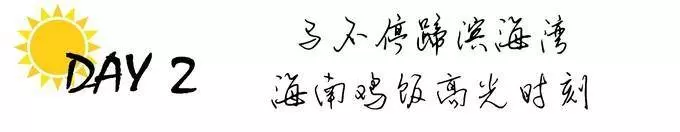 DAY 2
马不停蹄滨海湾
海南鸡饭高光时刻